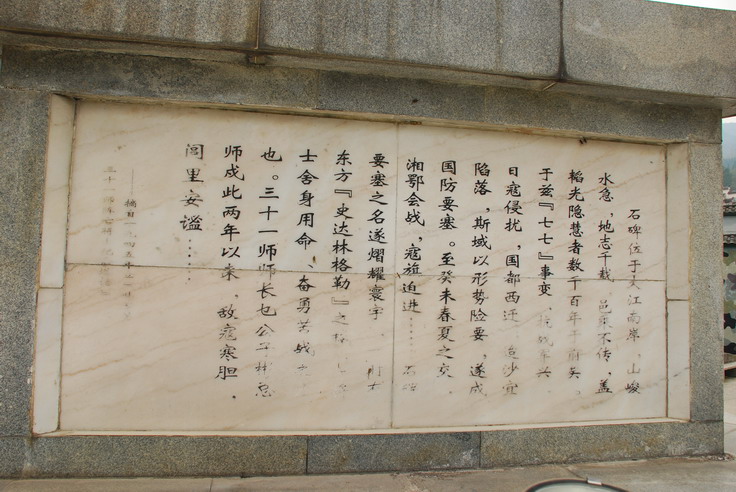 石碑位于大江南岸，山峻
水急，地志千载，邑乘不传，盖
韬光隐慧者数千百年于前矣。
于兹『七七』事变，抗战军兴
日寇侵扰，国都西迁，迨沙宜
陷落，斯域以形势险要，遂成
国防要塞。至癸未春夏之交
湘鄂会战，寇益迫进……石碑
要塞之名遂熠耀寰宇
东方『史达林格勒』之
士舍身用命、奋勇苦战
也。三十一师师长也公子林忽
师戍此两年以来，敌寇寒胆，
闾里安谧……
——摘自一
三十一